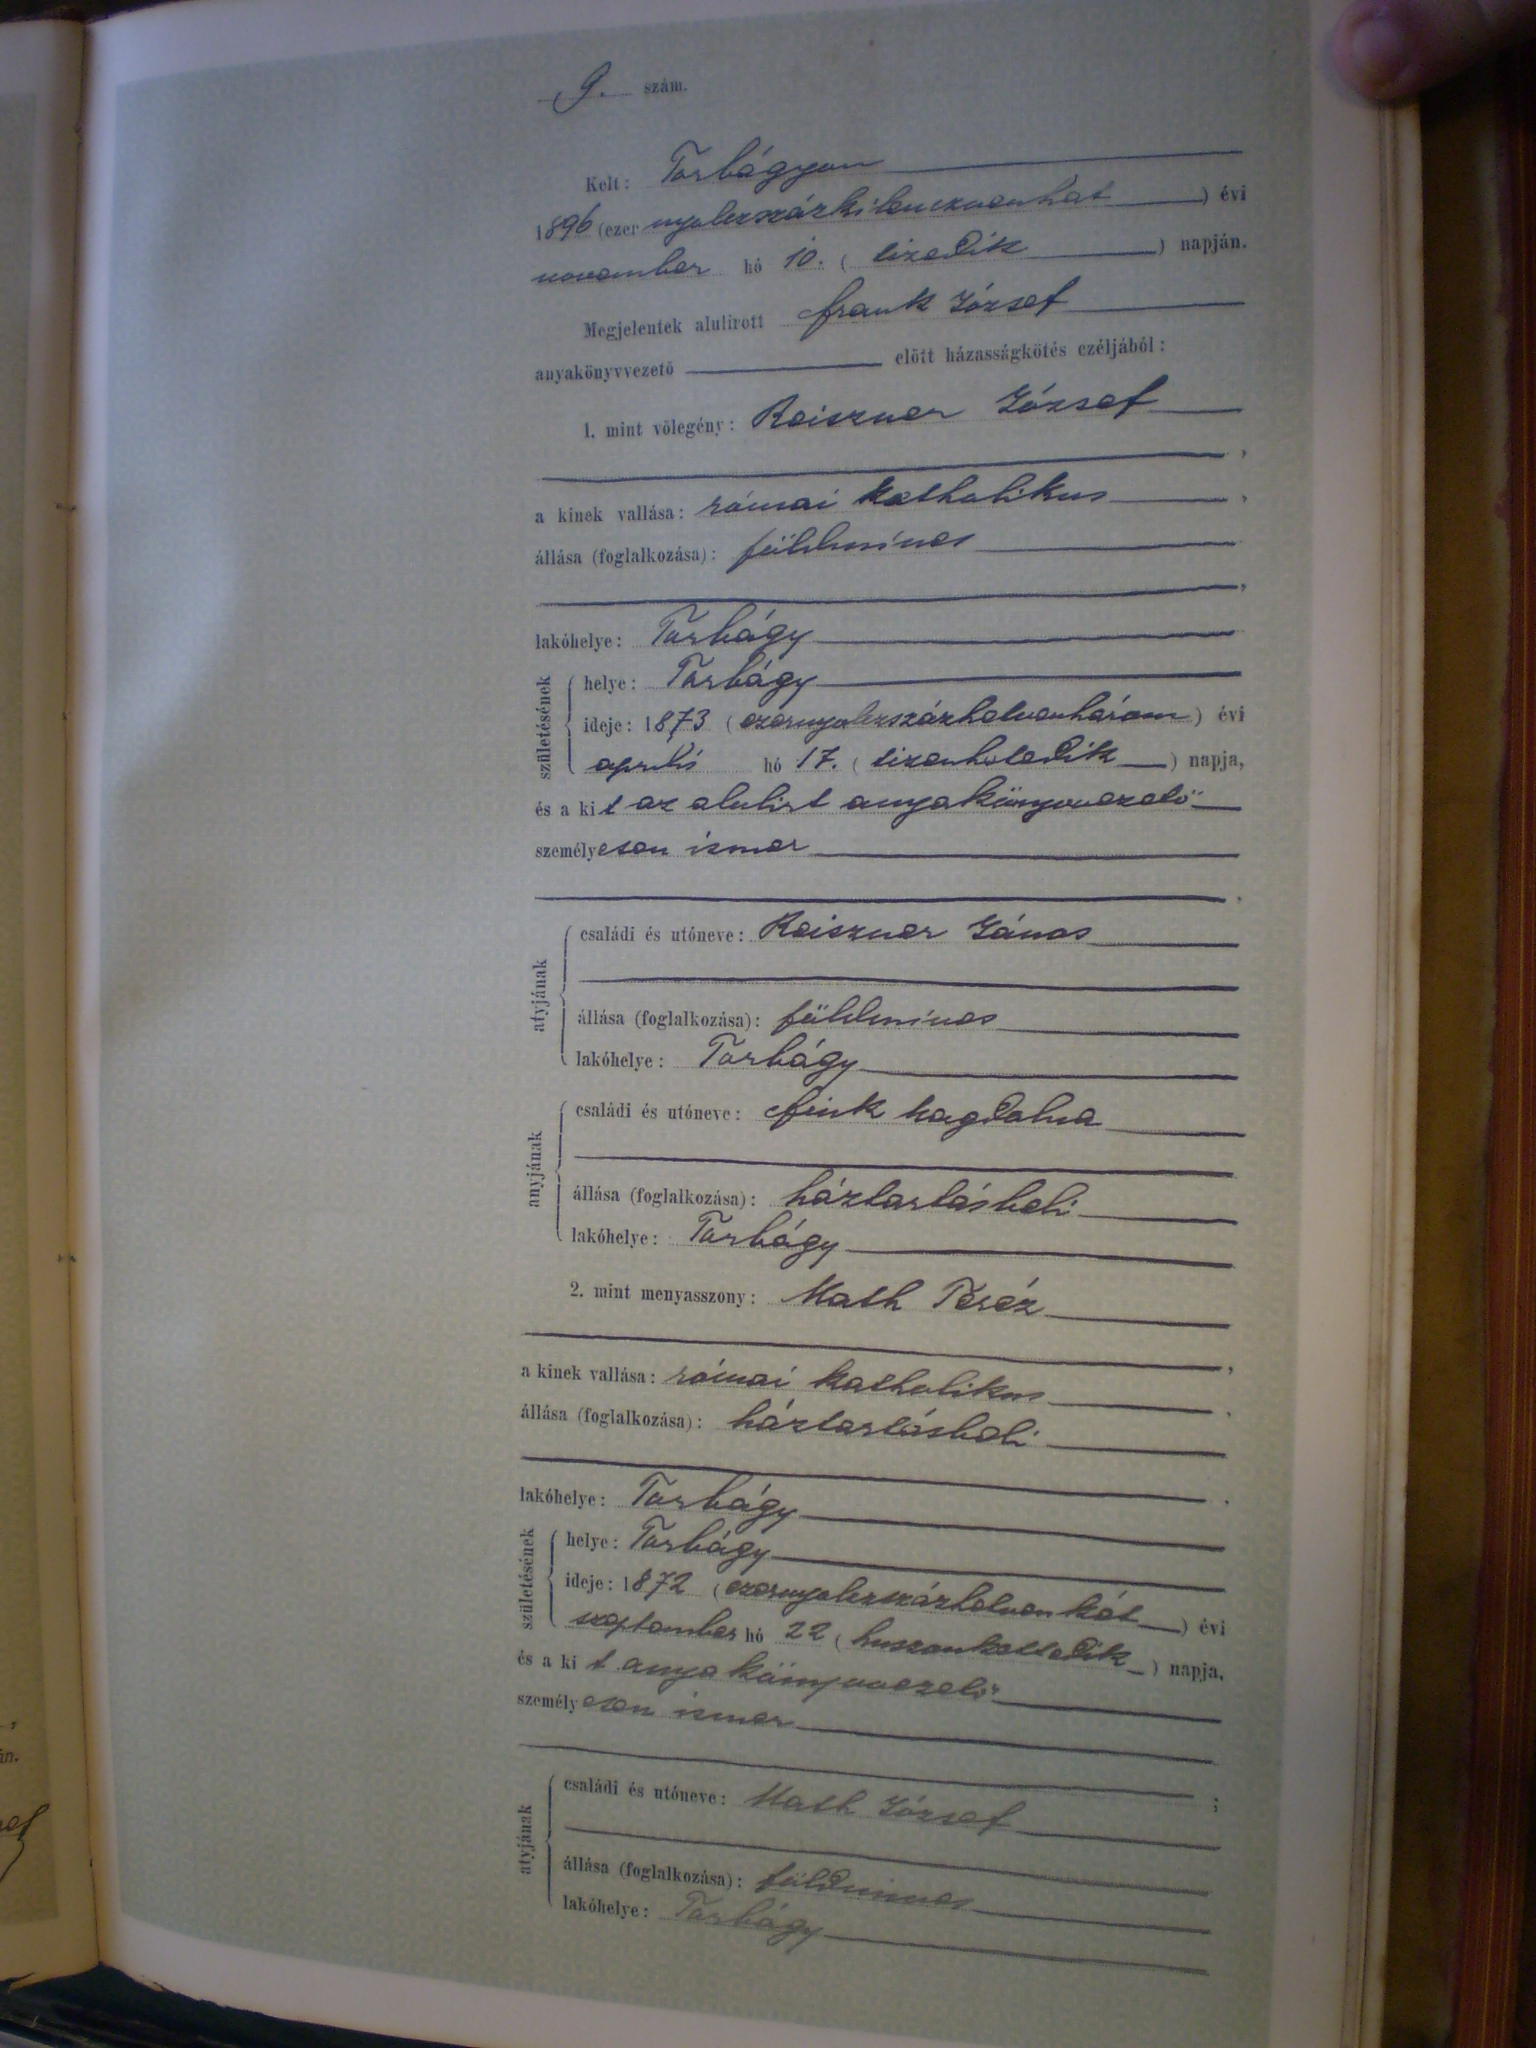 9. szám.
Kelt: Torbágyon
1896 (ezer nyolczszázkilenczvenhat) évi
november hó 10. (tizedik) napján.
Megjelentek alulirott Frank József
anyakönyvvezető előtt házasságkötés czéljából:
1. mint vőlegény: Reiszner József,
a kinek vallása: római katholikus,
állása (foglalkozása): földmíves,
lakóhelye: Torbágy
születésének
helye: Torbágy
ideje: 1873 (ezernyolczszázhetvenhárom) évi
április hó 17. (tizenhetedik) napja,
és a kit az alulirt anyakönyvvezető
személyesen ismer.
atyjának
családi és utóneve: Reiszner János
állása (foglalkozása): földmíves
lakóhelye: Torbágy
anyjának
családi és utóneve: Fink Magdolna
állása (foglalkozása): háztartásbeli
lakóhelye: Torbágy
2. mint menyasszony: Math Teréz,
a kinek vallása: római katholikus,
állása (foglalkozása): háztartásbeli,
lakóhelye: Torbágy
születésének
helye: Torbágy
ideje: 1872 (ezernyolczszázhetvenkét) évi
szeptember hó 22 (huszonkettedik) napja,
és a kit anyakönyvvezető
személyesen ismer
;
atyjának
családi és utóneve: Math József
állása (foglalkozása): földmíves
lakóhelye: Torbágy